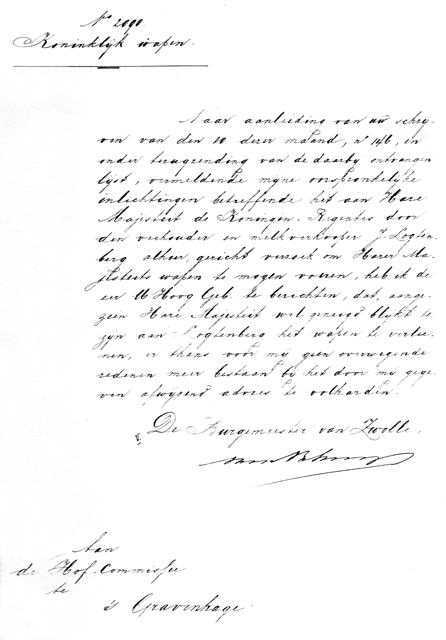 No 2090.
Koninklijk wapen.
Naar aanleiding van uw schrij-
ven van den 10 dezer maand, no 146, en
onder terugzending van de daarby ontvangen
lyst, vermeldende myne oorspronkelijke
inlichtingen betreffende het aan Hare
Majesteit de Koningin-Regentes door
den veehouder en melkverkooper J. Logten-
berg alhier, gericht verzoek om Harer Ma-
jesteits wapen te mogen voeren, heb ik de
eer U Hoog Geb. te berichten, dat, aange-
zien Hare Majesteit wel geneigd blijkt te
zijn aan Logtenberg het wapen te verlee-
nen, er thans voor mij geen overwegende
redenen meer bestaan bij het door mij gege-
ven afwijzend advies te volharden.
De Burgemeester van Zwolle,
Aan
de Hof-Commissie
te
's Gravenhage.